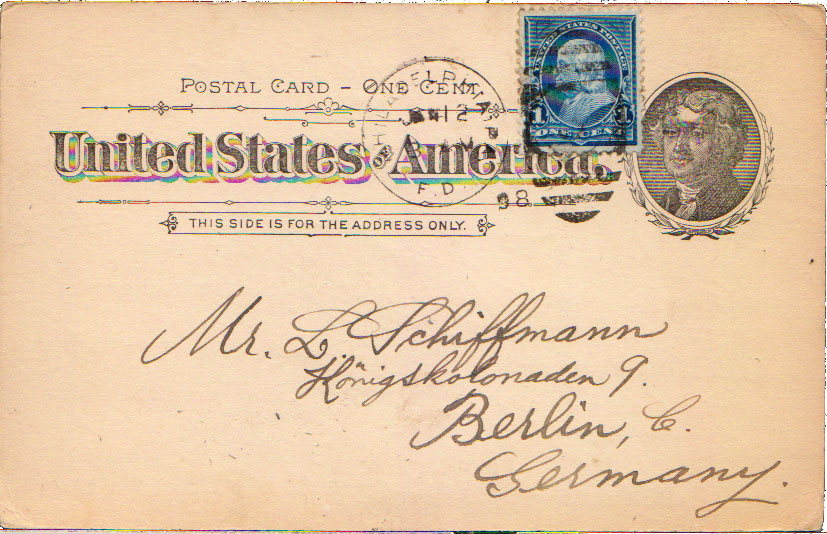 UNITED STATES POSTAGE
1 1
ONE CENT
POSTAL CARD – ONE CENT.
PHILADELPHIA PA
JAN 12
98
F.D.
United States of America.
THIS SIDE IS FOR THE ADDRESS ONLY.
Mr. L. Schiffmann
Königskolonaden 9.
Berlin, C.
Germany.